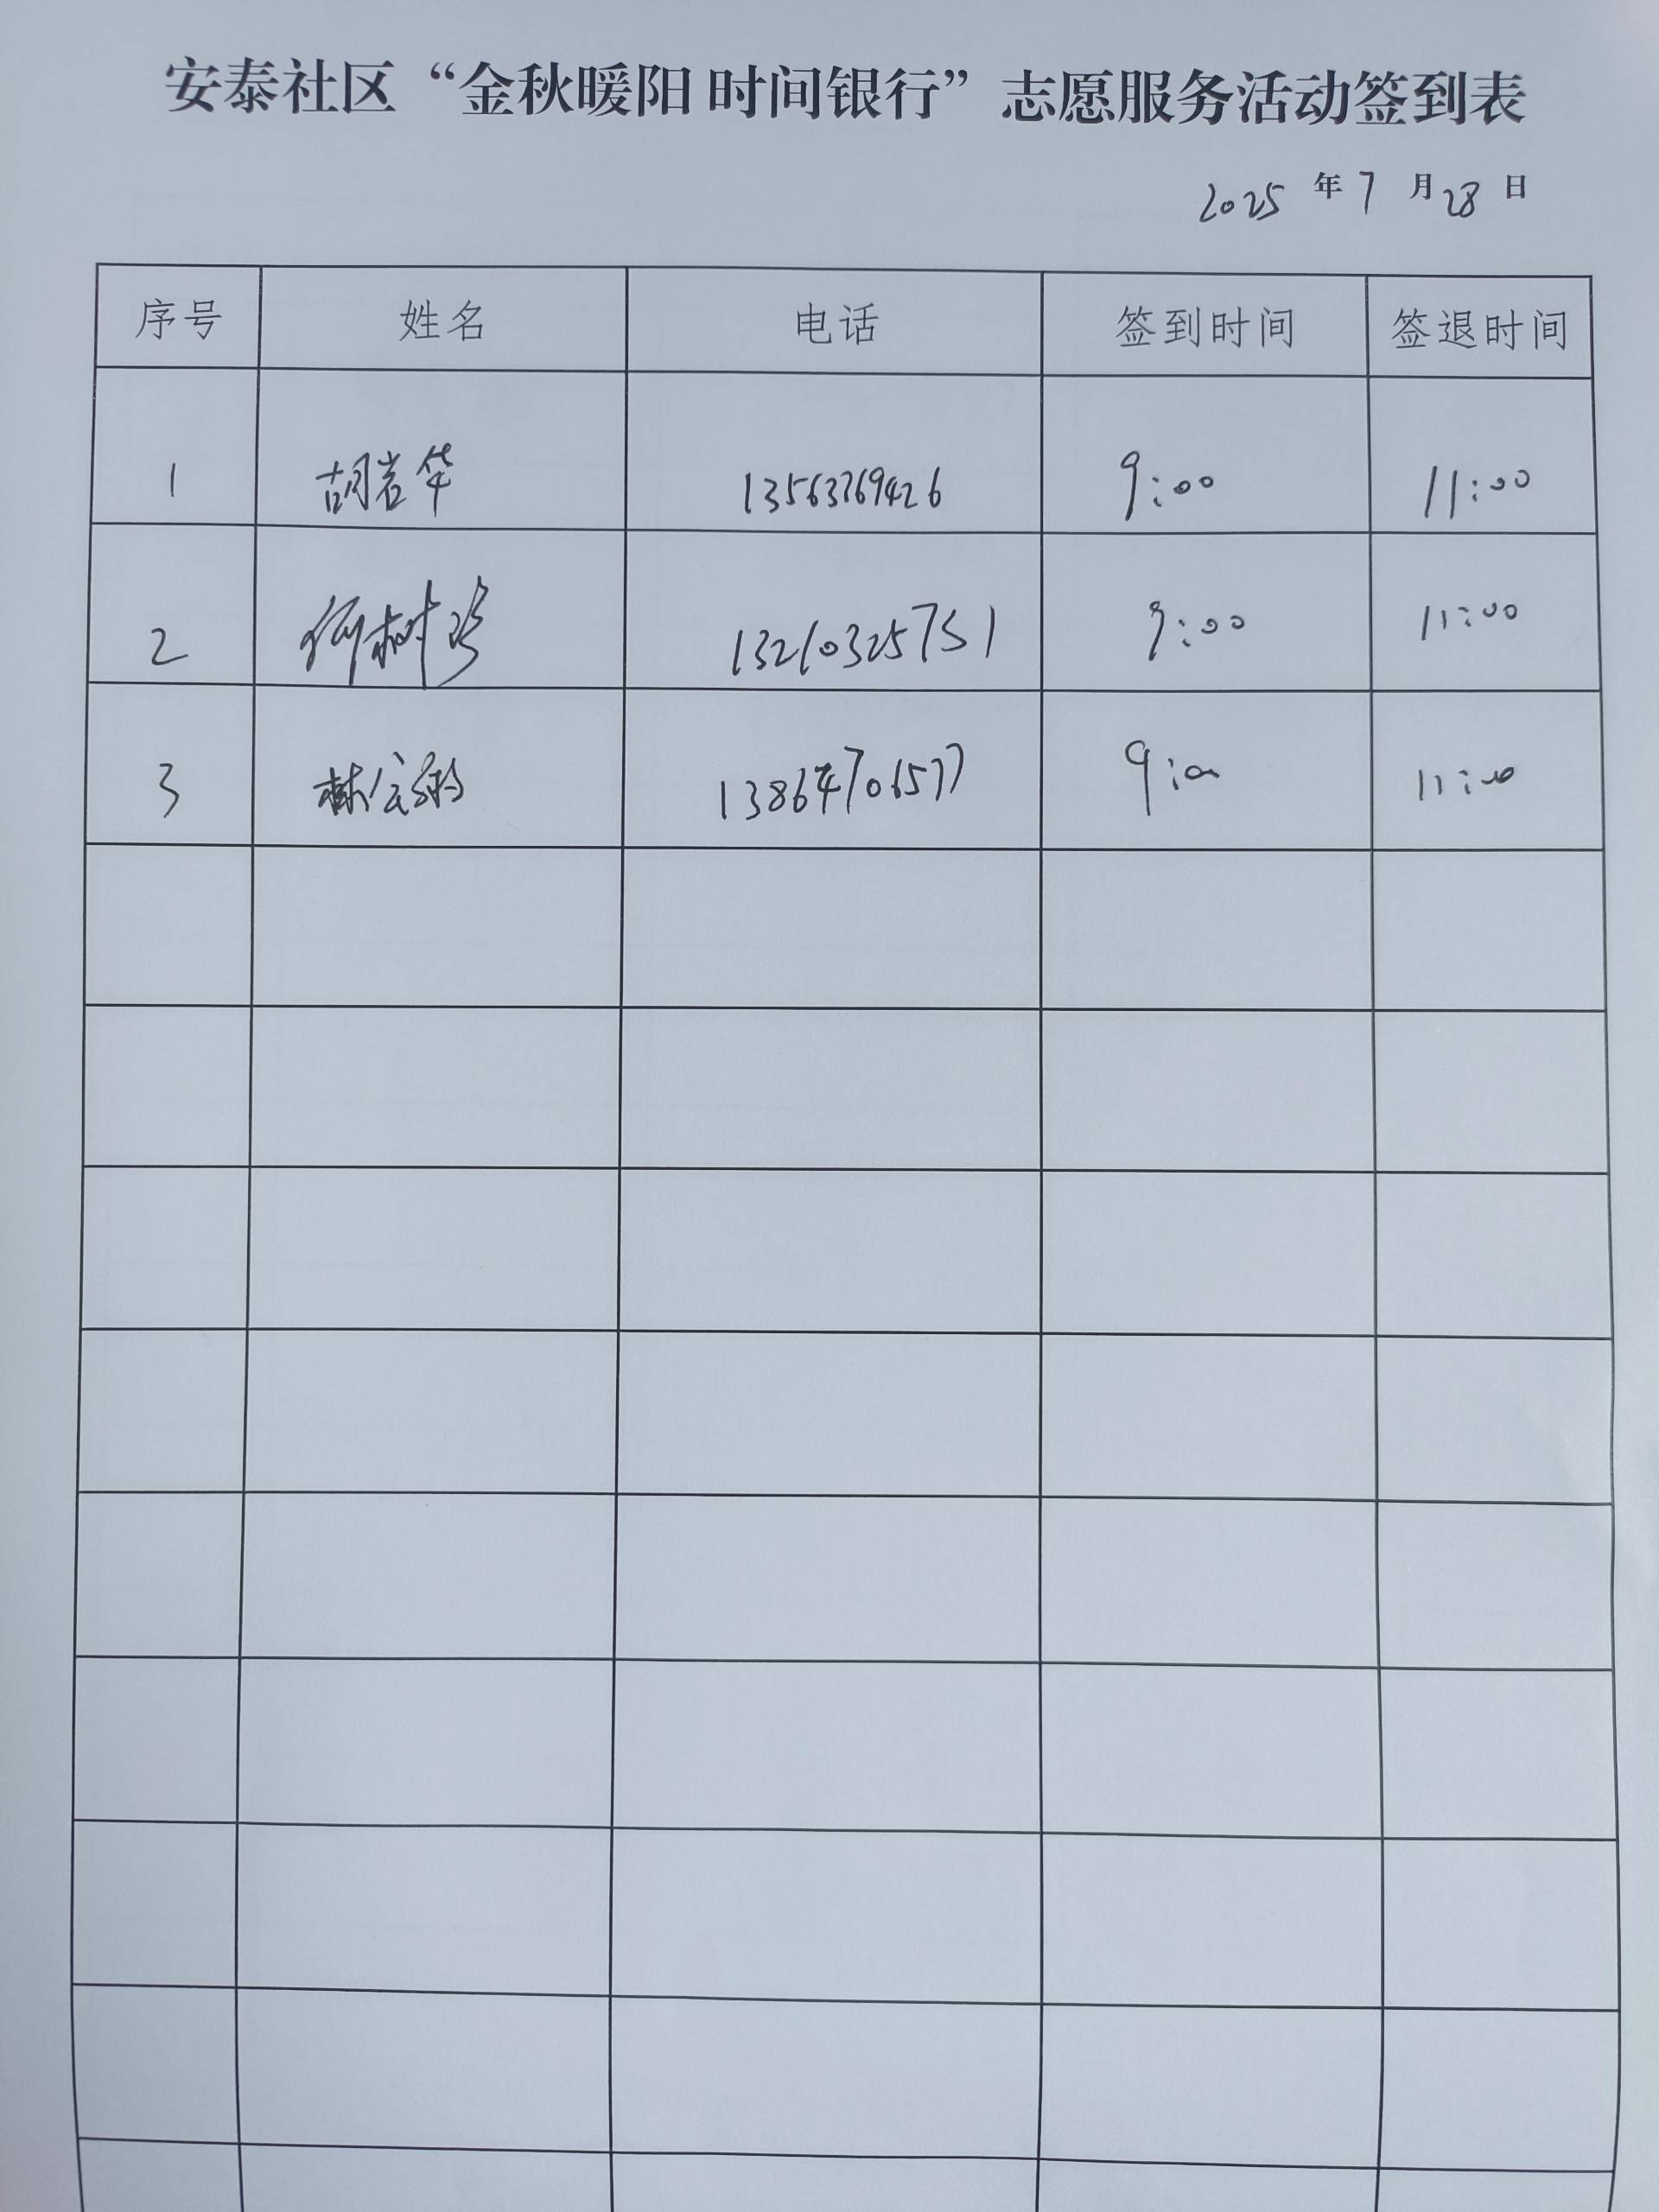 安泰社区“金秋暖阳 时间银行”志愿服务活动签到表
2025 年 7 月 28 日
序号 姓名 电话 签到时间 签退时间
1 胡岩华 13563769426 9:00 11:00
2 何树珍 13210325751 9:00 11:00
3 林 13864706577 9:00 11:00